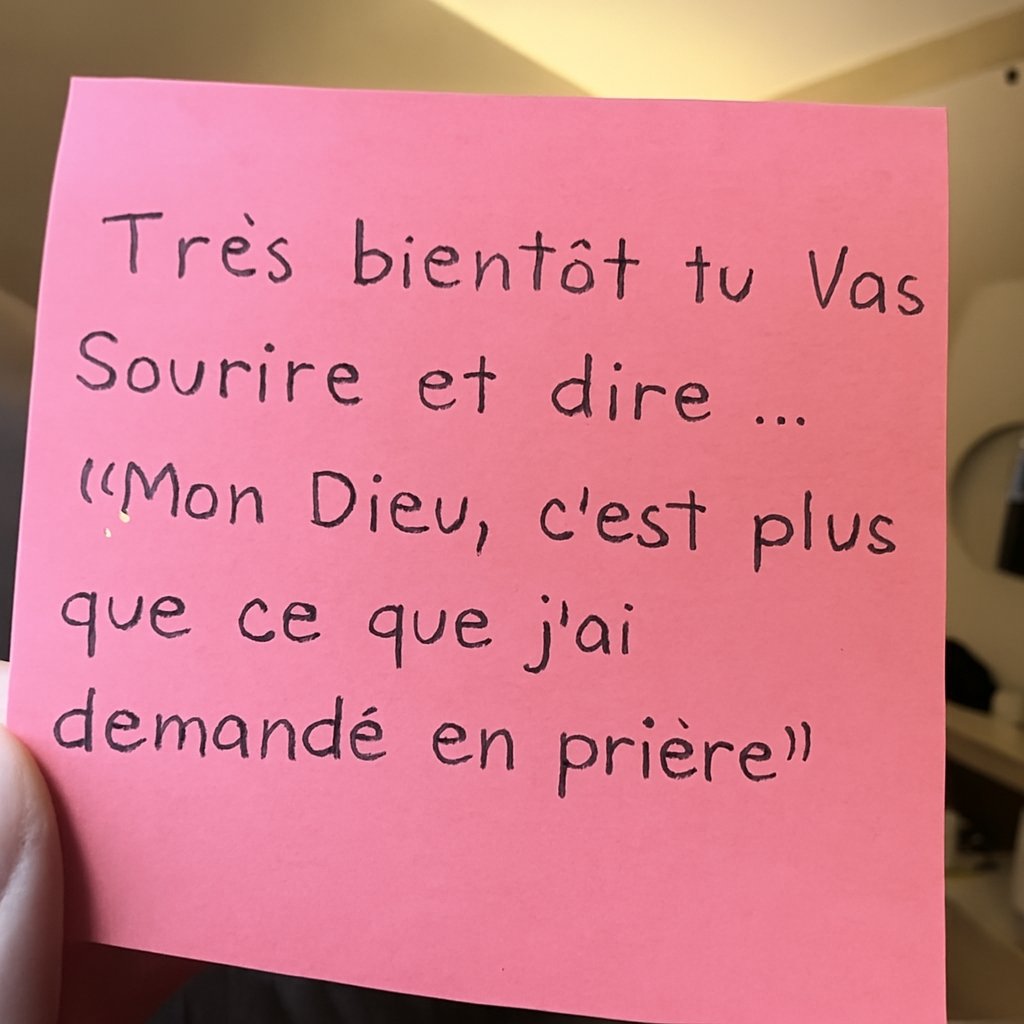 Très bientôt tu Vas
Sourire et dire ...
“Mon Dieu, c'est plus
que ce que j'ai
demandé en prière”